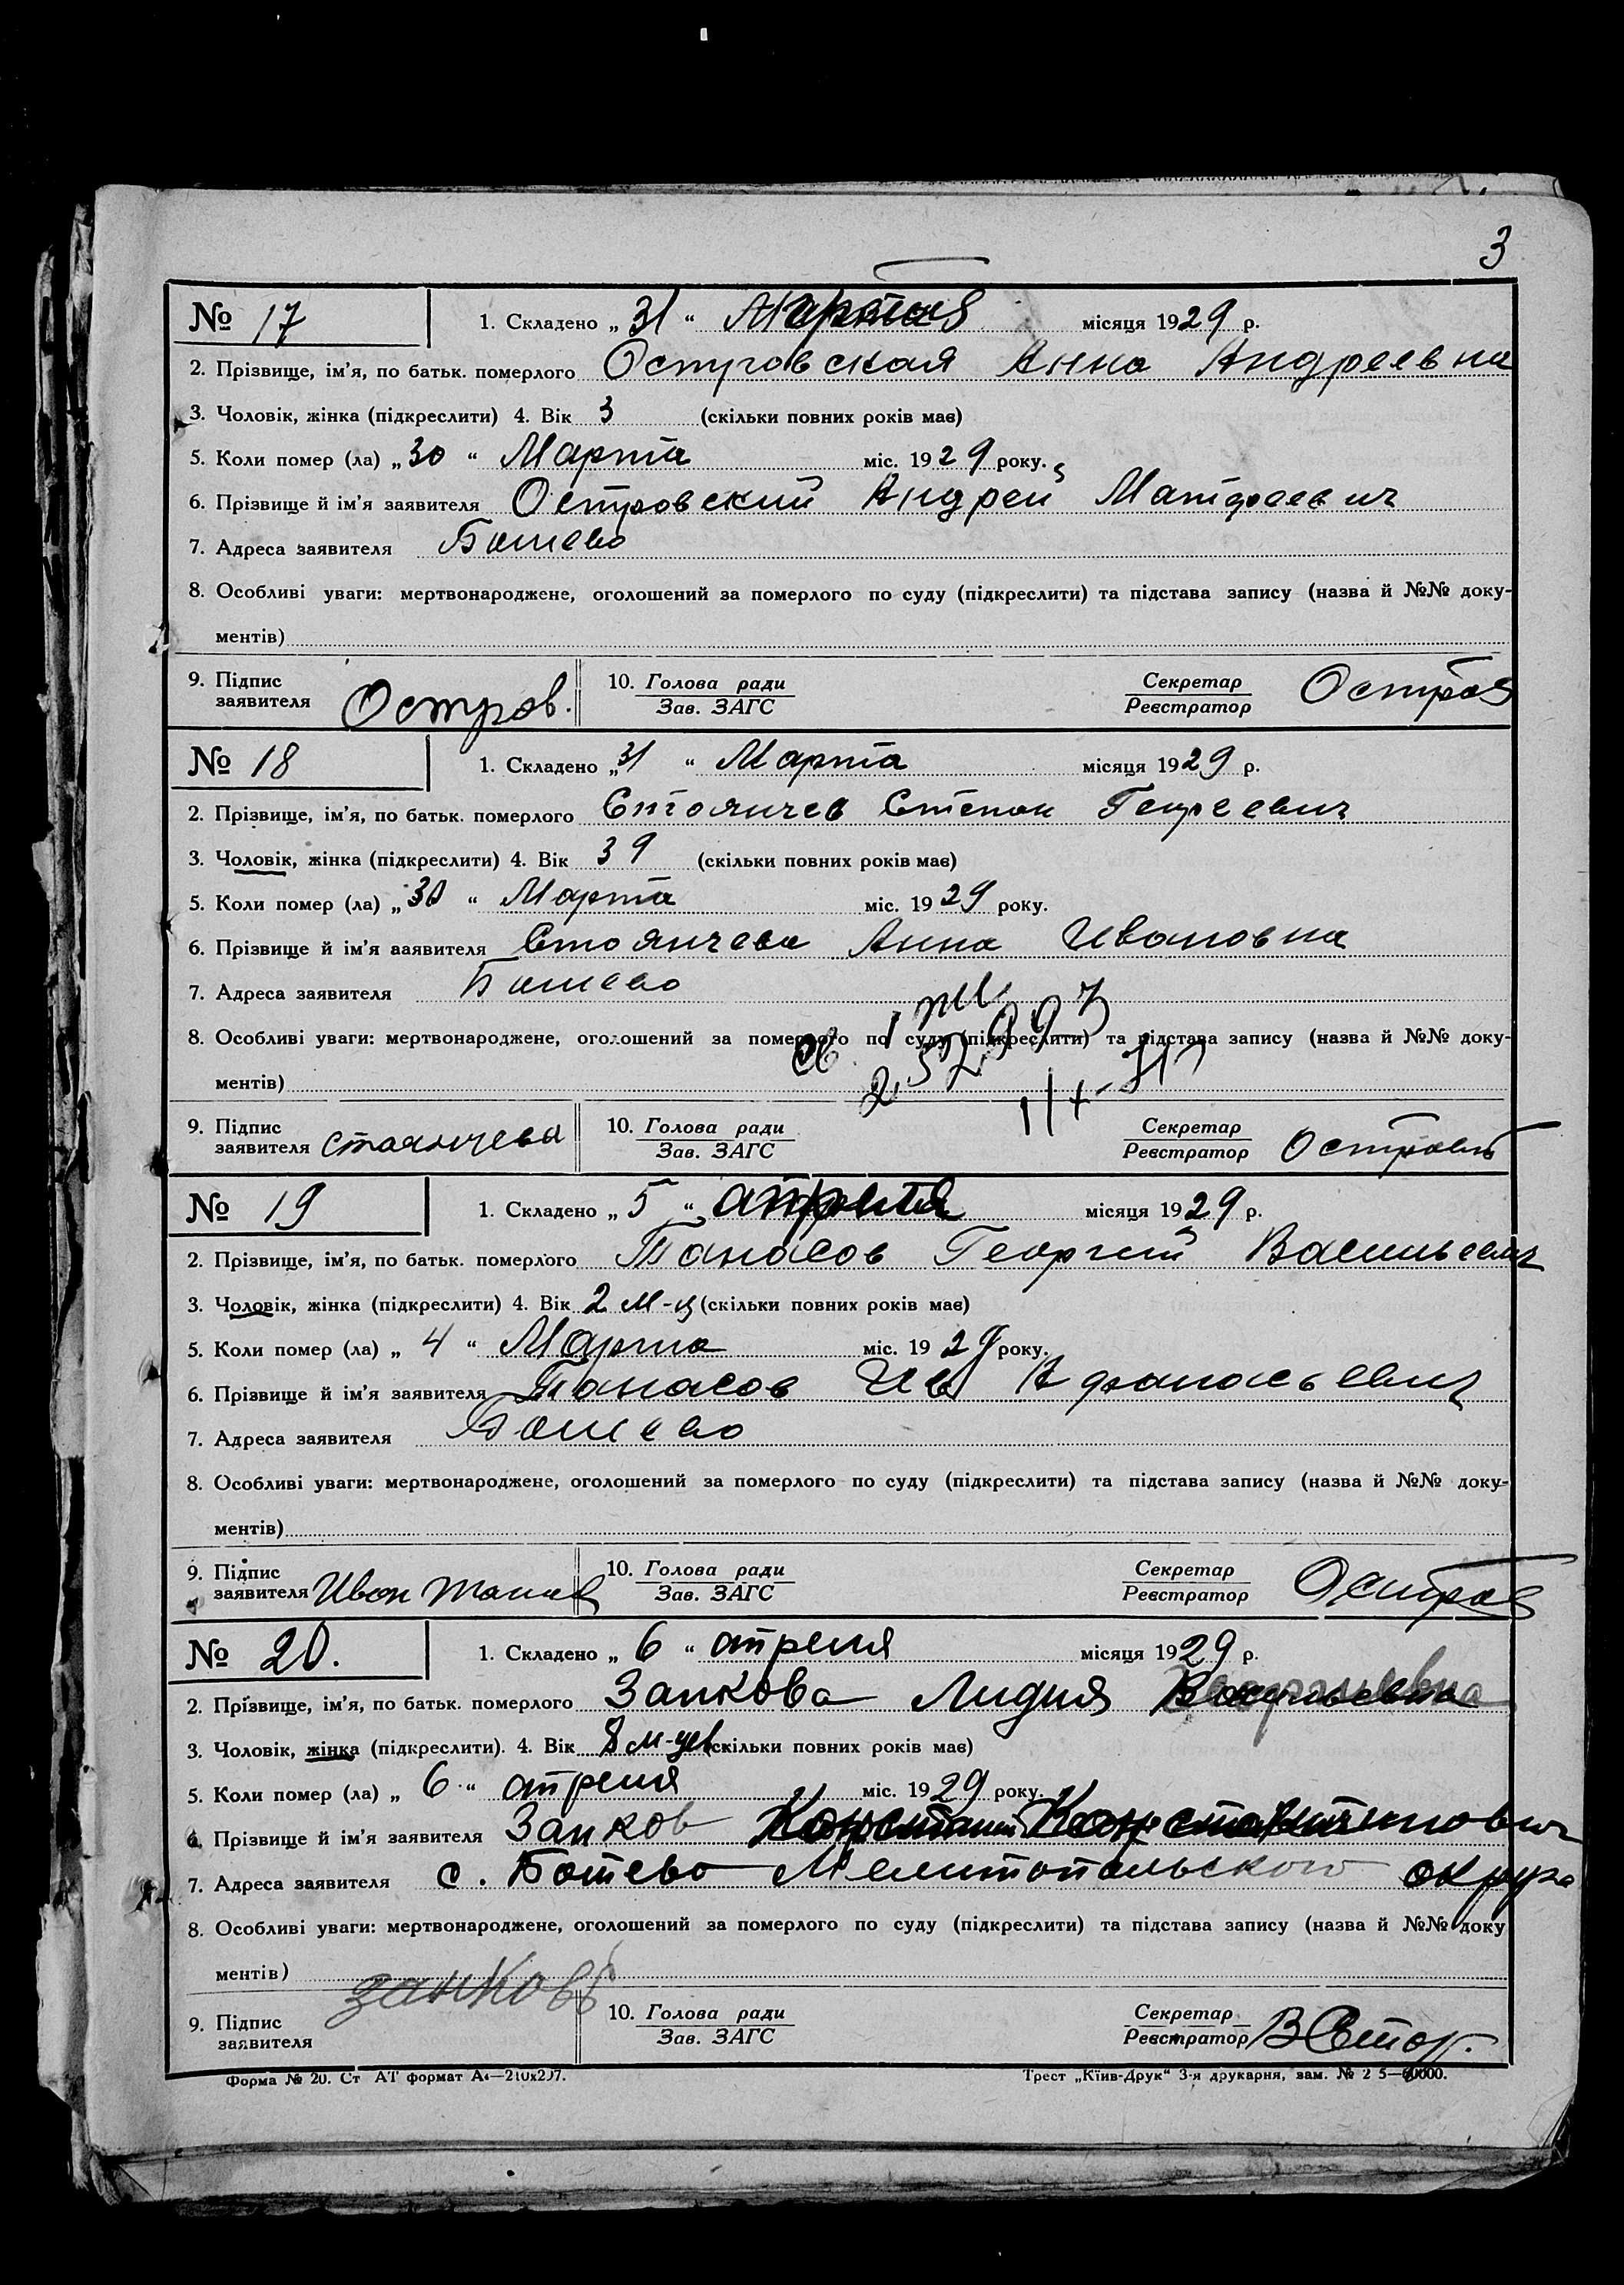 3
№ 17 1. Складено „ 31 “ Марта місяця 1929 р.
2. Прізвище, ім’я, по батьк. померлого Островская Анна Андреевна
3. Чоловік, жінка (підкреслити) 4. Вік 3 (скільки повних років має)
5. Коли помер (ла) „ 30 “ Марта міс. 1929 року.
6. Прізвище й ім’я заявителя Островский Андрей Матфеевич
7. Адреса заявителя Ботево
8. Особливі уваги: мертвонароджене, оголошений за померлого по суду (підкреслити) та підстава запису (назва й №№ доку-
ментів)
9. Підпис заявителя Остров. 10. Голова ради Секретар
Зав. ЗАГС Реєстратор
№ 18 1. Складено „ 31 “ Марта місяця 1929 р.
2. Прізвище, ім’я, по батьк. померлого Стоянчев Степан Георгеевич
3. Чоловік, жінка (підкреслити) 4. Вік 39 (скільки повних років має)
5. Коли помер (ла) „ 30 “ Марта міс. 1929 року.
6. Прізвище й ім’я заявителя Стоянчева Анна Ивановна
7. Адреса заявителя Ботево
8. Особливі уваги: мертвонароджене, оголошений за померлого по суду (підкреслити) та підстава запису (назва й №№ доку-
ментів)
9. Підпис заявителя Стоянчева 10. Голова ради Секретар
Зав. ЗАГС Реєстратор
№ 19 1. Складено „ 5 “ апреля місяця 1929 р.
2. Прізвище, ім’я, по батьк. померлого Танасов Георгий Васильевич
3. Чоловік, жінка (підкреслити) 4. Вік 2 м-ц (скільки повних років має)
5. Коли помер (ла) „ 4 “ Марта міс. 1929 року.
6. Прізвище й ім’я заявителя Танасов Ив Афанасьевич
7. Адреса заявителя Ботево
8. Особливі уваги: мертвонароджене, оголошений за померлого по суду (підкреслити) та підстава запису (назва й №№ доку-
ментів)
9. Підпис заявителя Иван 10. Голова ради Секретар
Зав. ЗАГС Реєстратор
№ 20. 1. Складено „ 6 “ апреля місяця 1929 р.
2. Прізвище, ім’я, по батьк. померлого Занкова Лидия
3. Чоловік, жінка (підкреслити). 4. Вік 8 м-цев (скільки повних років має)
5. Коли помер (ла) „ 6 “ апреля міс. 1929 року.
6. Прізвище й ім’я заявителя Занков Константин Константинович
7. Адреса заявителя с. Ботево Мелитопольского округа
8. Особливі уваги: мертвонароджене, оголошений за померлого по суду (підкреслити) та підстава запису (назва й №№ доку
ментів)
Занков
9. Підпис заявителя 10. Голова ради Секретар
Зав. ЗАГС Реєстратор
Форма № 20. Ст АТ формат А₄—210х297. Трест „Київ-Друк“ 3-я друкарня, зам.